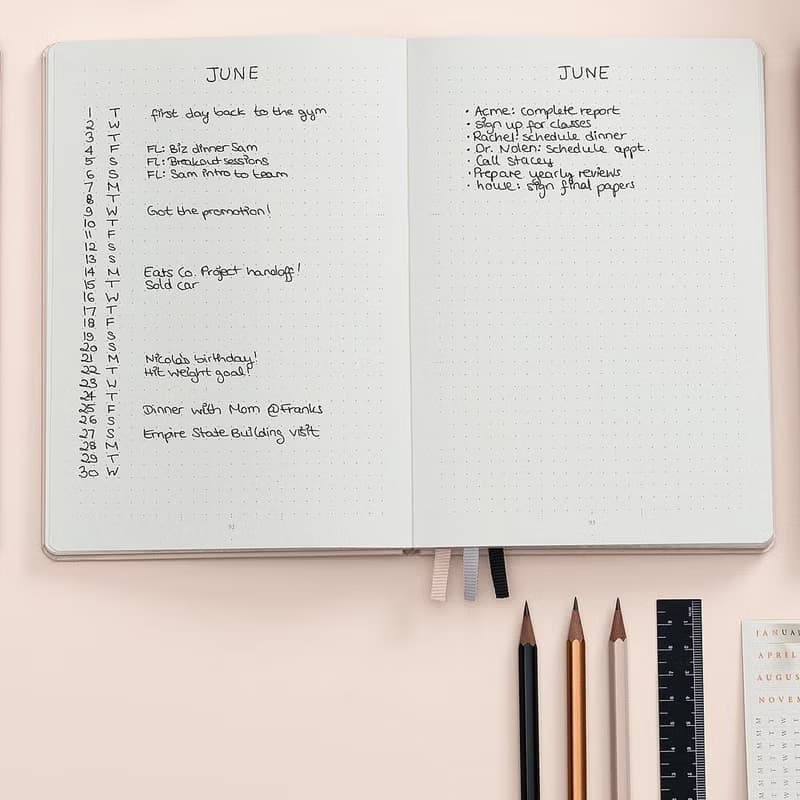 JUNE
1 T first day back to the gym
2 W
3 T
4 F FL: Biz dinner Sam
5 S FL: Breakout sessions
6 S FL: Sam intro to team
7 M
8 T
9 W Got the promotion!
10 T
11 F
12 S
13 S
14 M Eats Co. Project handoff!
15 T Sold car
16 W
17 T
18 F
19 S
20 S
21 M Nicolas birthday!
22 T Hit weight goal!
23 W
24 T
25 F Dinner with Mom @Franks
26 S
27 S Empire State Building visit
28 M
29 T
30 W
92
JUNE
• Acme: complete report
• Sign up for classes
• Rachel: schedule dinner
• Dr. Nolen: schedule appt.
• Call Stacey
• Prepare yearly reviews
• house: sign final papers
93
JANUA
APRIL
AUGUS
NOVEM